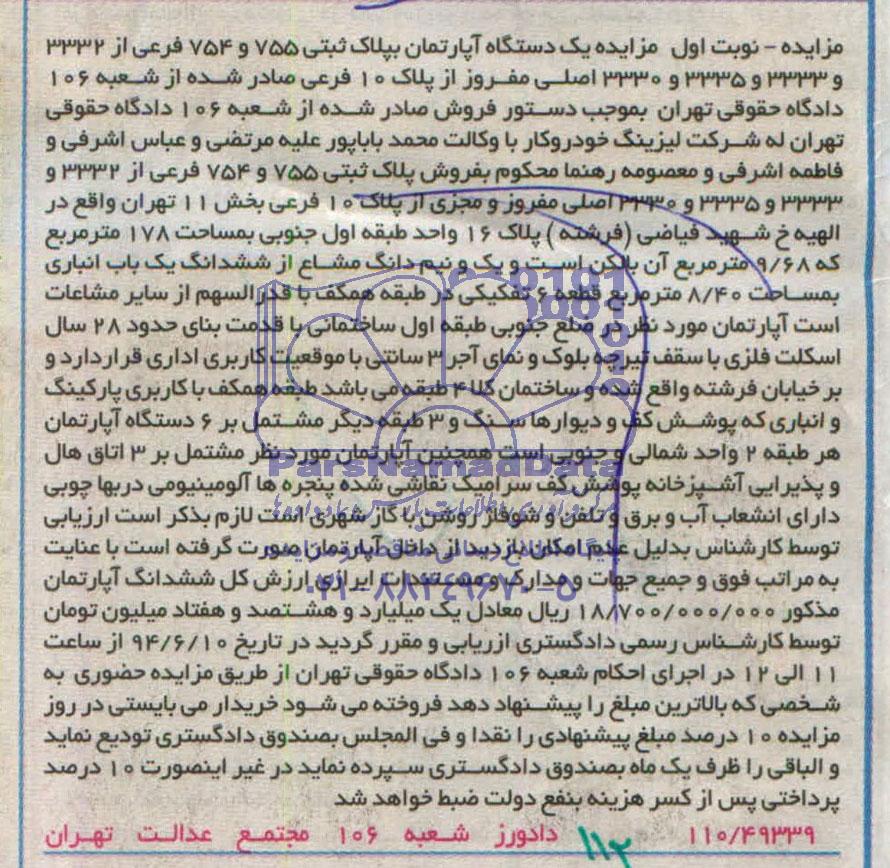 مزایده - نوبت اول مزایده یک دستگاه آپارتمان بپلاک ثبتی ۷۵۵ و ۷۵۴ فرعی از ۳۳۳۲
و ۳۳۳۳ و ۳۳۳۵ و ۳۳۳۰ اصلی مفروز از پلاک ۱۰ فرعی صادر شده از شعبه ۱۰۶
دادگاه حقوقی تهران بموجب دستور فروش صادر شده از شعبه ۱۰۶ دادگاه حقوقی
تهران له شرکت لیزینگ خودروکار با وکالت محمد باباپور علیه مرتضی و عباس اشرفی و
فاطمه اشرفی و معصومه رهنما محکوم بفروش پلاک ثبتی ۷۵۵ و ۷۵۴ فرعی از ۳۳۳۲ و
۳۳۳۳ و ۳۳۳۵ و ۳۳۳۰ اصلی مفروز و مجزی از پلاک ۱۰ فرعی بخش ۱۱ تهران واقع در
الهیه خ شهید فیاضی (فرشته) پلاک ۱۶ واحد طبقه اول جنوبی بمساحت ۱۷۸ مترمربع
که ۹/۶۸ مترمربع آن بالکن است و یک و نیم دانگ مشاع از ششدانگ یک باب انباری
بمساحت ۸/۴۰ مترمربع قطعه ۶ تفکیکی در طبقه همکف با قدرالسهم از سایر مشاعات
است آپارتمان مورد نظر در ضلع جنوبی طبقه اول ساختمانی با قدمت بنای حدود ۲۸ سال
اسکلت فلزی با سقف تیرچه بلوک و نمای آجر ۳ سانتی با موقعیت کاربری اداری قراردارد و
بر خیابان فرشته واقع شده و ساختمان کلا ۴ طبقه می باشد طبقه همکف با کاربری پارکینگ
و انباری که پوشش کف و دیوارها سنگ و ۳ طبقه دیگر مشتمل بر ۶ دستگاه آپارتمان
هر طبقه ۲ واحد شمالی و جنوبی است همچنین آپارتمان مورد نظر مشتمل بر ۳ اتاق هال
و پذیرایی آشپزخانه پوشش کف سرامیک نقاشی شده پنجره ها آلومینیومی دربها چوبی
دارای انشعاب آب و برق و تلفن و شوفاژ روشن با گاز شهری است لازم بذکر است ارزیابی
توسط کارشناس بدلیل عدم امکان بازدید از داخل آپارتمان صورت گرفته است با عنایت
به مراتب فوق و جمیع جهات و مدارک و مستندات ابرازی ارزش کل ششدانگ آپارتمان
مذکور ۱۸/۷۰۰/۰۰۰/۰۰۰ ریال معادل یک میلیارد و هشتصد و هفتاد میلیون تومان
توسط کارشناس رسمی دادگستری ازریابی و مقرر گردید در تاریخ ۹۴/۶/۱۰ از ساعت
۱۱ الی ۱۲ در اجرای احکام شعبه ۱۰۶ دادگاه حقوقی تهران از طریق مزایده حضوری به
شخصی که بالاترین مبلغ را پیشنهاد دهد فروخته می شود خریدار می بایستی در روز
مزایده ۱۰ درصد مبلغ پیشنهادی را نقدا و فی المجلس بصندوق دادگستری تودیع نماید
و الباقی را ظرف یک ماه بصندوق دادگستری سپرده نماید در غیر اینصورت ۱۰ درصد
پرداختی پس از کسر هزینه بنفع دولت ضبط خواهد شد
۱۱۰/۴۹۳۳۹ دادورز شعبه ۱۰۶ مجتمع عدالت تهران
۱۱۲
ParsNamadData
۰۲۱-۸۸۳۴۹۶۷۰-۵